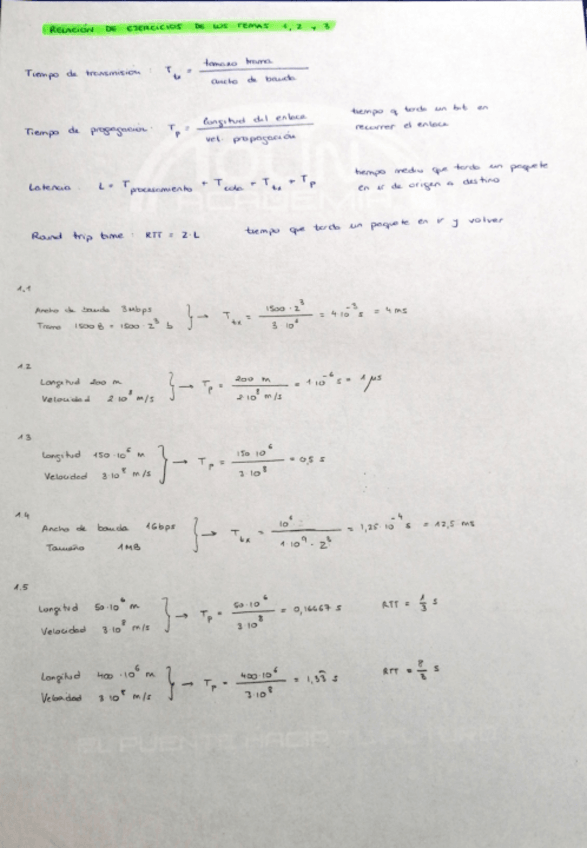 RELACIÓN DE EJERCICIOS DE LOS TEMAS 1, 2 y 3
Tiempo de transmisión : T_tx = tamaño trama / ancho de banda
Tiempo de propagación : T_p = longitud del enlace / vel propagación tiempo q tarda un bit en recorrer el enlace
Latencia : L = T_procesamiento + T_cola + T_tx + T_p tiempo medio que tarda un paquete en ir de origen a destino
Round trip time : RTT = 2·L tiempo que tarda un paquete en ir y volver
1.1
Ancho de banda 3Mbps
Trama 1500 B = 1500 · 2^3 b } → T_tx = 1500 · 2^3 / 3·10^6 = 4·10^-3 s = 4 ms
1.2
Longitud 200 m
Velocidad 2·10^8 m/s } → T_p = 200 m / 2·10^8 m/s = 1·10^-6 s = 1 μs
1.3
Longitud 150·10^6 m
Velocidad 3·10^8 m/s } → T_p = 150·10^6 / 3·10^8 = 0,5 s
1.4
Ancho de banda 1Gbps
Tamaño 1MB } → T_tx = 10^6 / 1·10^9 · 2^3 = 1,25·10^-4 s = 12,5 ms
1.5
Longitud 50·10^6 m
Velocidad 3·10^8 m/s } → T_p = 50·10^6 / 3·10^8 = 0,16667 s RTT = 1/3 s
Longitud 400·10^6 m
Velocidad 3·10^8 m/s } → T_p = 400·10^6 / 3·10^8 = 1,33 s RTT = 8/3 s
ACADEMIA
EL PUENTE HACIA TU FUTURO